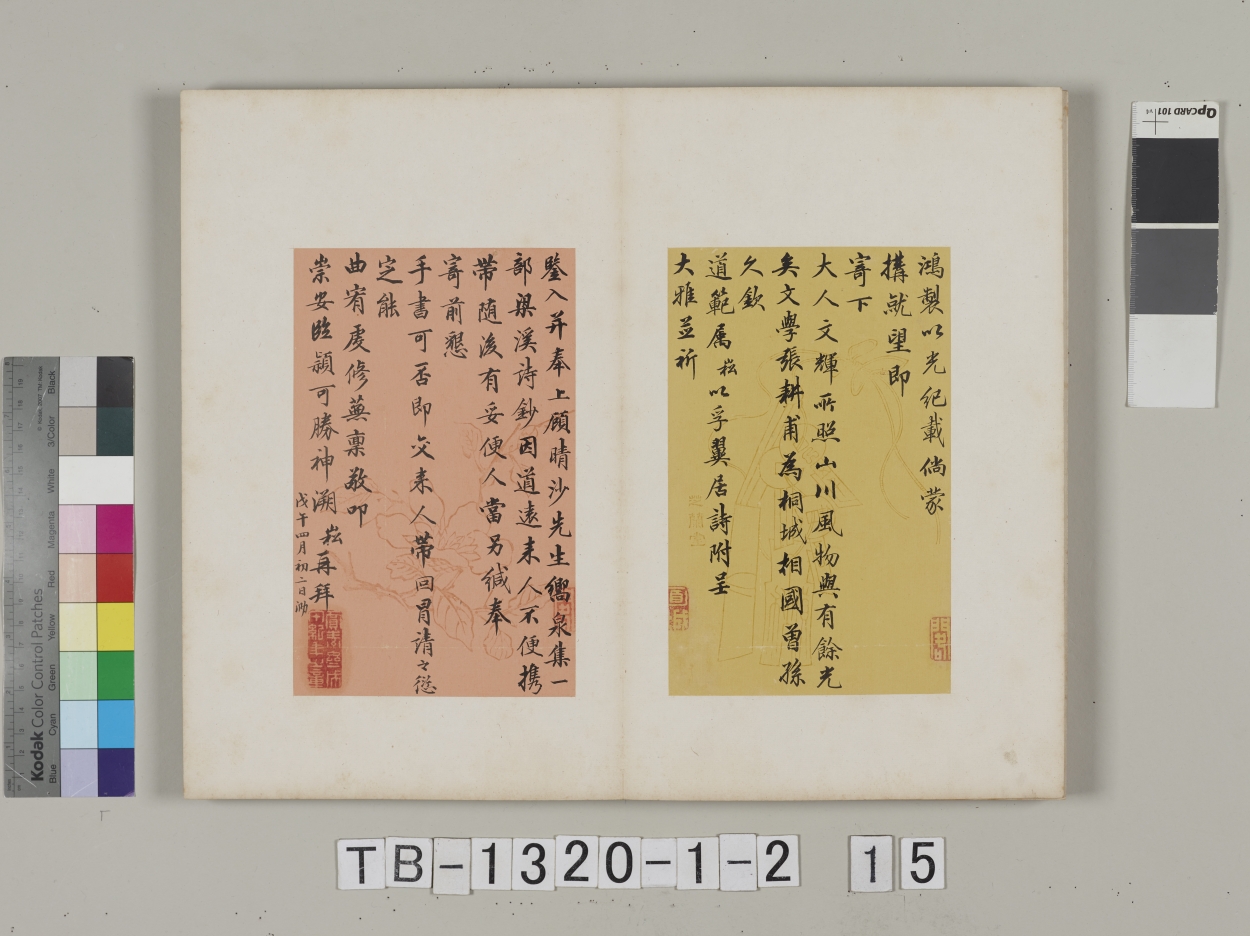 鴻製以光紀載倘蒙
搆就望即
寄下
大人文輝所照山川風物與有餘光
矣文學張耕甫為桐城相國曾孫
久欽
道範属崧以孚翼居詩附呈
大雅並祈
鑒入并奉上顧晴沙先生嚮泉集一
部梁溪詩鈔因道遠来人不便攜
帶随後有妥便人當另緘奉
寄前懇
手書可否即交来人帶回冒請之愆
定能
曲宥虔修蕪稟敬叩
崇安臨潁可勝神溯 崧再拜
戊午四月初二日泐
QPCARD 101 v1
Kodak Color Control Patches
Blue Cyan Green Yellow Red Magenta White 3/Color Black
TB-1320-1-2 15